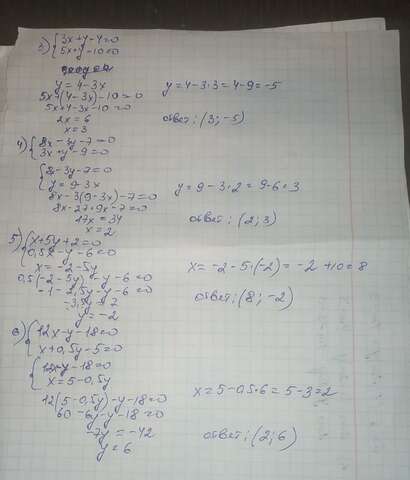 3) {3x+y-4=0
5x+y-10=0
y=4-3x
5x+(4-3x)-10=0
5x+4-3x-10=0
2x=6
x=3
y=4-3·3=4-9=-5
ответ: (3; -5)
4) {8x-3y-7=0
3x+y-9=0
{8x-3y-7=0
y=9-3x
8x-3(9-3x)-7=0
8x-27+9x-7=0
17x=34
x=2
y=9-3·2=9-6=3
ответ: (2; 3)
5) {x+5y+2=0
0,5x-y-6=0
x=-2-5y
0,5(-2-5y)-y-6=0
-1-2,5y-y-6=0
-3,5y=7
y=-2
x=-2-5·(-2)=-2+10=8
ответ: (8; -2)
6) {12x-y-18=0
x+0,5y-5=0
{12x-y-18=0
x=5-0,5y
12(5-0,5y)-y-18=0
60-6y-y-18=0
-7y=-42
y=6
x=5-0,5·6=5-3=2
ответ: (2; 6)